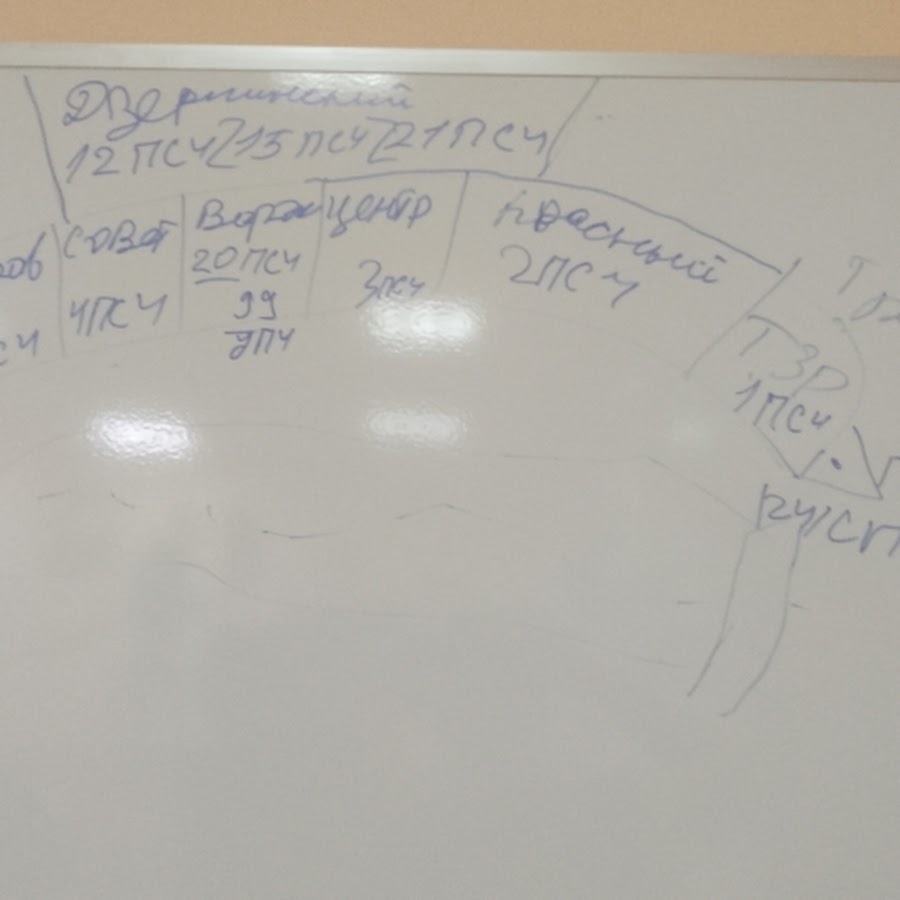 Дзержинский
12 ПСЧ 15 ПСЧ 21 ПСЧ
ров
СЧ
Совет
4ПСЧ
Ворош
20 ПСЧ
99
ПЧ
Центр
3 ПСЧ
Красный
2ПСЧ
Т
ТЗР
1 ПСЧ